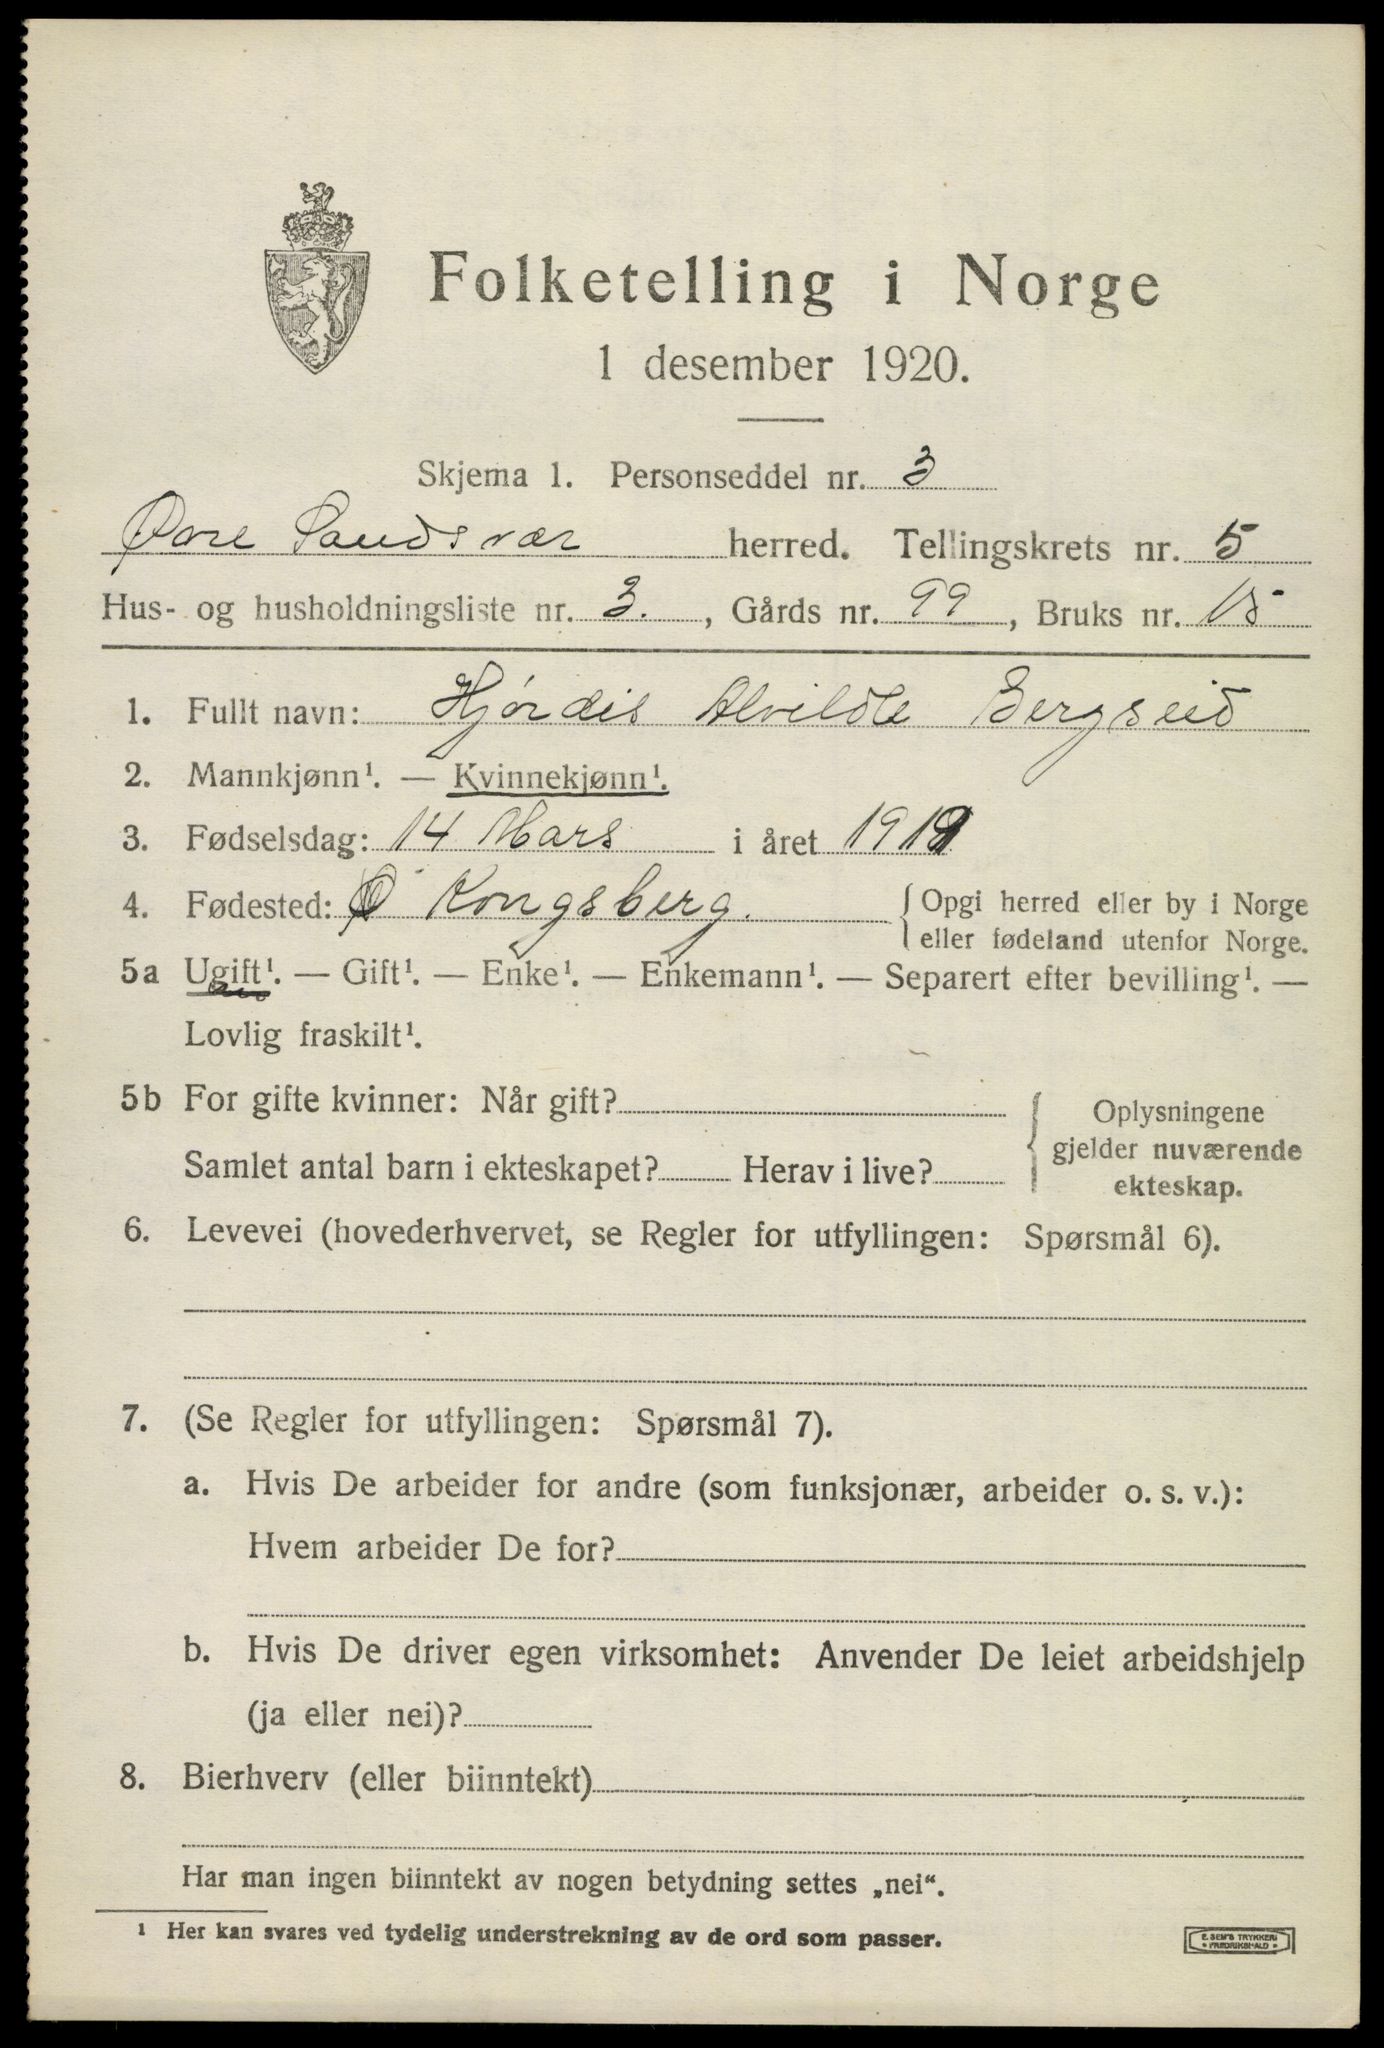 Folketelling i Norge
1 desember 1920.
Skjema 1. Personseddel nr. 3
Øvre Sandsvær herred. Tellingskrets nr. 5
Hus- og husholdningsliste nr. 3. , Gårds nr. 99 , Bruks nr. 15
1. Fullt navn: Hjórdis Alvilde Bergseid
2. Mannkjønn¹. — Kvinnekjønn¹.
3. Fødselsdag: 14 Mars i året
4. Fødested: Kongsberg. { Opgi herred eller by i Norge
eller fødeland utenfor Norge.
5a Ugift¹. — Gift¹. — Enke¹. — Enkemann¹. — Separert efter bevilling¹. —
Lovlig fraskilt¹.
5b For gifte kvinner: Når gift?
Samlet antal barn i ekteskapet? Herav i live?
{ Oplysningene
gjelder nuværende
ekteskap.
6. Levevei (hovederhvervet, se Regler for utfyllingen: Spørsmål 6).
7. (Se Regler for utfyllingen: Spørsmål 7).
a. Hvis De arbeider for andre (som funksjonær, arbeider o. s. v.):
Hvem arbeider De for?
b. Hvis De driver egen virksomhet: Anvender De leiet arbeidshjelp
(ja eller nei)?
8. Bierhverv (eller biinntekt)
Har man ingen biinntekt av nogen betydning settes „nei“.
¹ Her kan svares ved tydelig understrekning av de ord som passer.
E. SEM'S TRYKKERI
FREDRIKSHALD